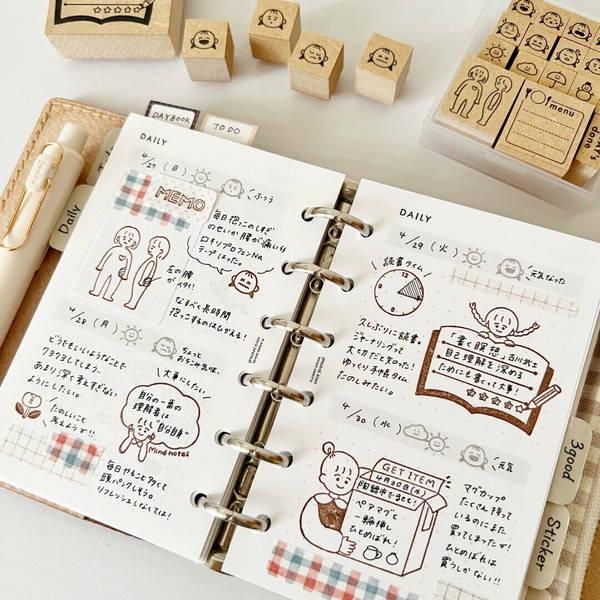 DAYBOOK
TO DO
Daily
DAILY
4/27 (日)
ふつう
MEMO
毎日抱っこのしすぎ
のせいか腰が痛いから
ロキソプロフェンNa
テープはった。
左の腰
がイタイ!
なるべく長時間
抱っこするのはひかえる!
4/28 (月)
ちょっと
おちこみ気味。
どうでもいいようなことで
クヨクヨしてしまう。
あまり深く考えすぎない
ようにしたい。
大事にしたい
自分の一番の
理解者は
"自分自身"
Mind notes
たのしいこと
考えよーっ!!
毎日やること多くて
頭パンクしそう。
リフレッシュしなくては!
DAILY
4/29 (火)
元気なった
読書タイム
12
久しぶりに読書。
ジャーナリングって
大切だと知った!
ゆっくり手帳タイム
たのしみたい。
「書く瞑想」古川武士
自己理解を深める
ためにも書くって大事!
4/30 (水)
元気
GET ITEM
4月30日(水)
陶器市でget!
ペアマグと
一輪挿し
ひとめぼれ!
マグカップ
たくさん持って
いるのにまた
買ってしまったが!
ひとめぼれは
買うしかない!!
3good
Sticker
menu
done